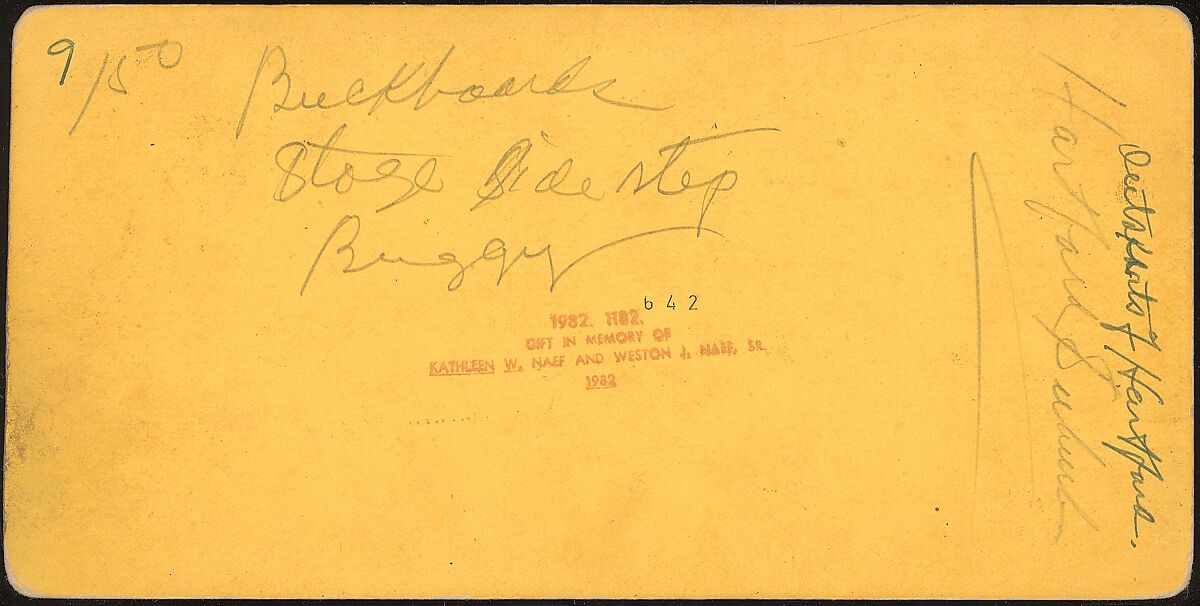 9/50
Buckboards
Stage Side step
Buggy
642
1982. 1182.
GIFT IN MEMORY OF
KATHLEEN W. NAEF AND WESTON J. NAEF, SR.
1982
Hartford
of Hartford.